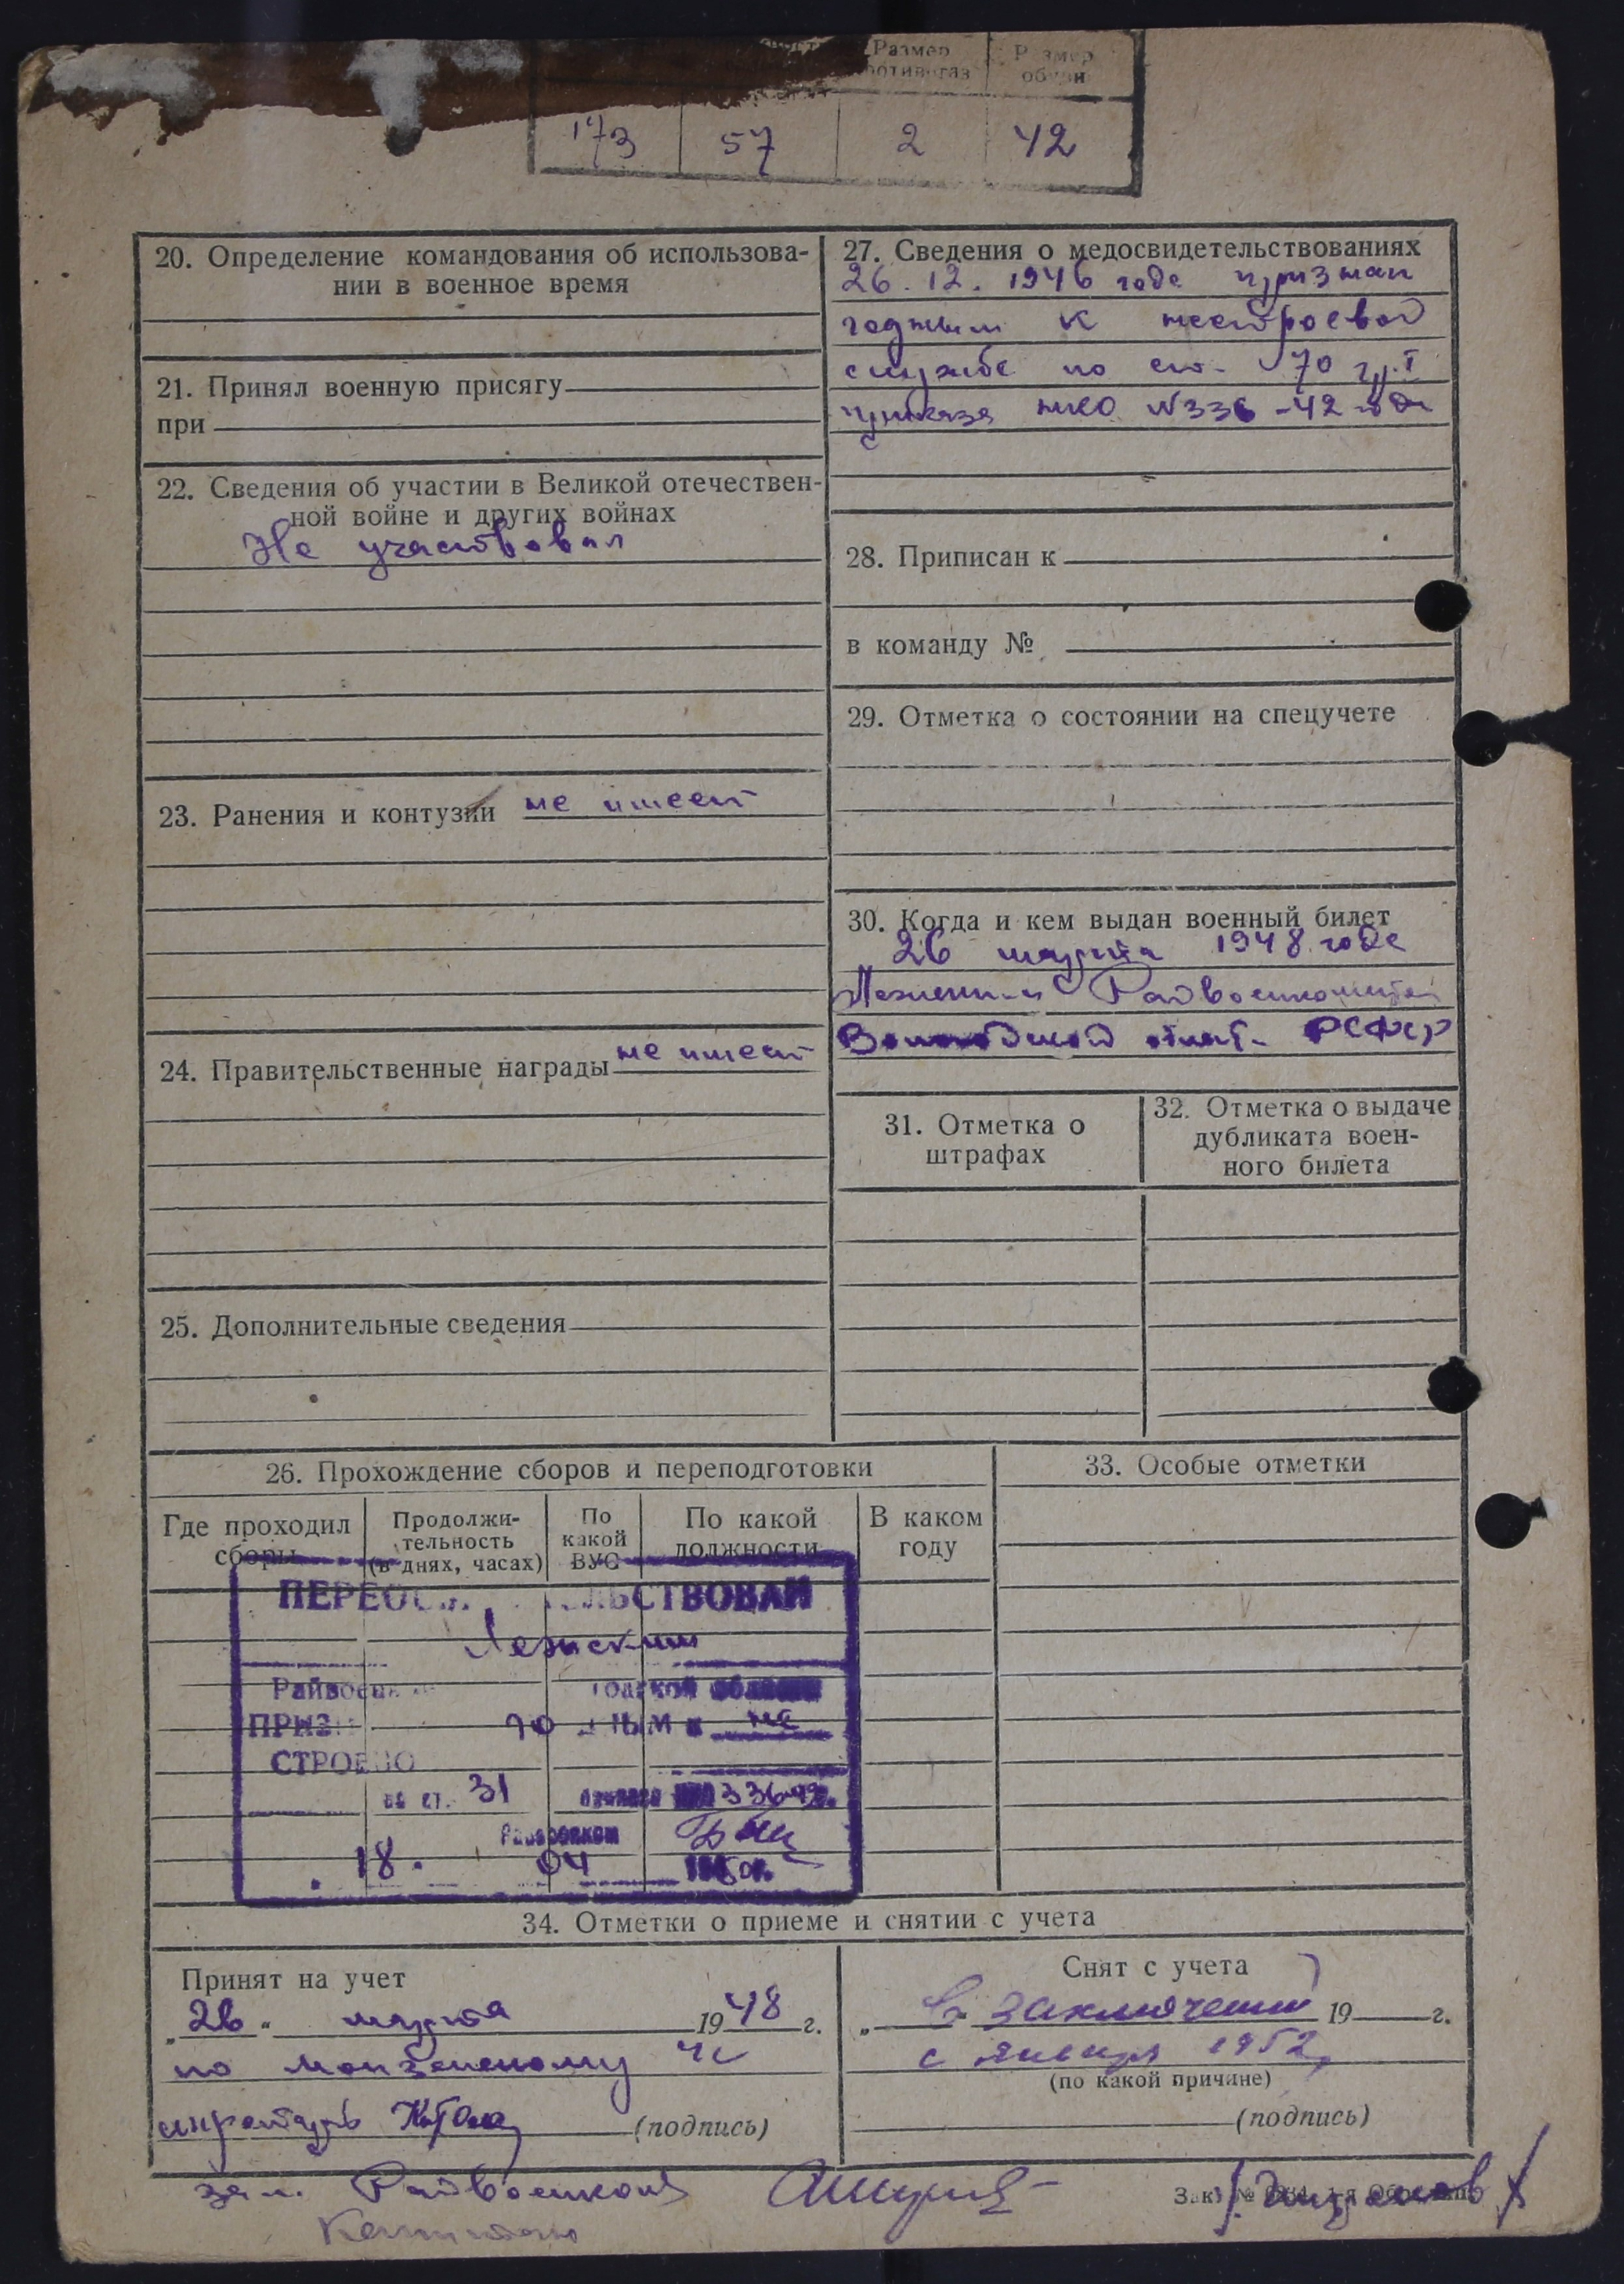 Размер
Размер
обуви
173 57 2 42
20. Определение командования об использова-
нии в военное время
21. Принял военную присягу
при
22. Сведения об участии в Великой отечествен-
ной войне и других войнах
Не участвовал
23. Ранения и контузии не имеет
24. Правительственные награды не имеет
25. Дополнительные сведения
27. Сведения о медосвидетельствованиях
26. 12. 1946 года признан
годным к нестроевой
службе по ст. 70 гр. I
приказа НКО №336 -42 года
28. Приписан к
в команду №
29. Отметка о состоянии на спецучете
30. Когда и кем выдан военный билет
26 марта 1948 года
Лежским Райвоенкоматом
Вологодской обл. РСФСР
31. Отметка о
штрафах
32. Отметка о выдаче
дубликата воен-
ного билета
26. Прохождение сборов и переподготовки
Где проходил
сборы
Продолжи-
тельность
(в днях, часах)
По
какой
ВУС
По какой
должности
В каком
году
Лежским
не
по ст. 31 336-42.
18. 04
33. Особые отметки
34. Отметки о приеме и снятии с учета
Принят на учет
„26“ марта 1948 г.
по Монзенскому
(подпись)
Снят с учета
„ В заключении 19 г.
с января 1952
(по какой причине)
(подпись)
зам. Райвоенкома
Капитан